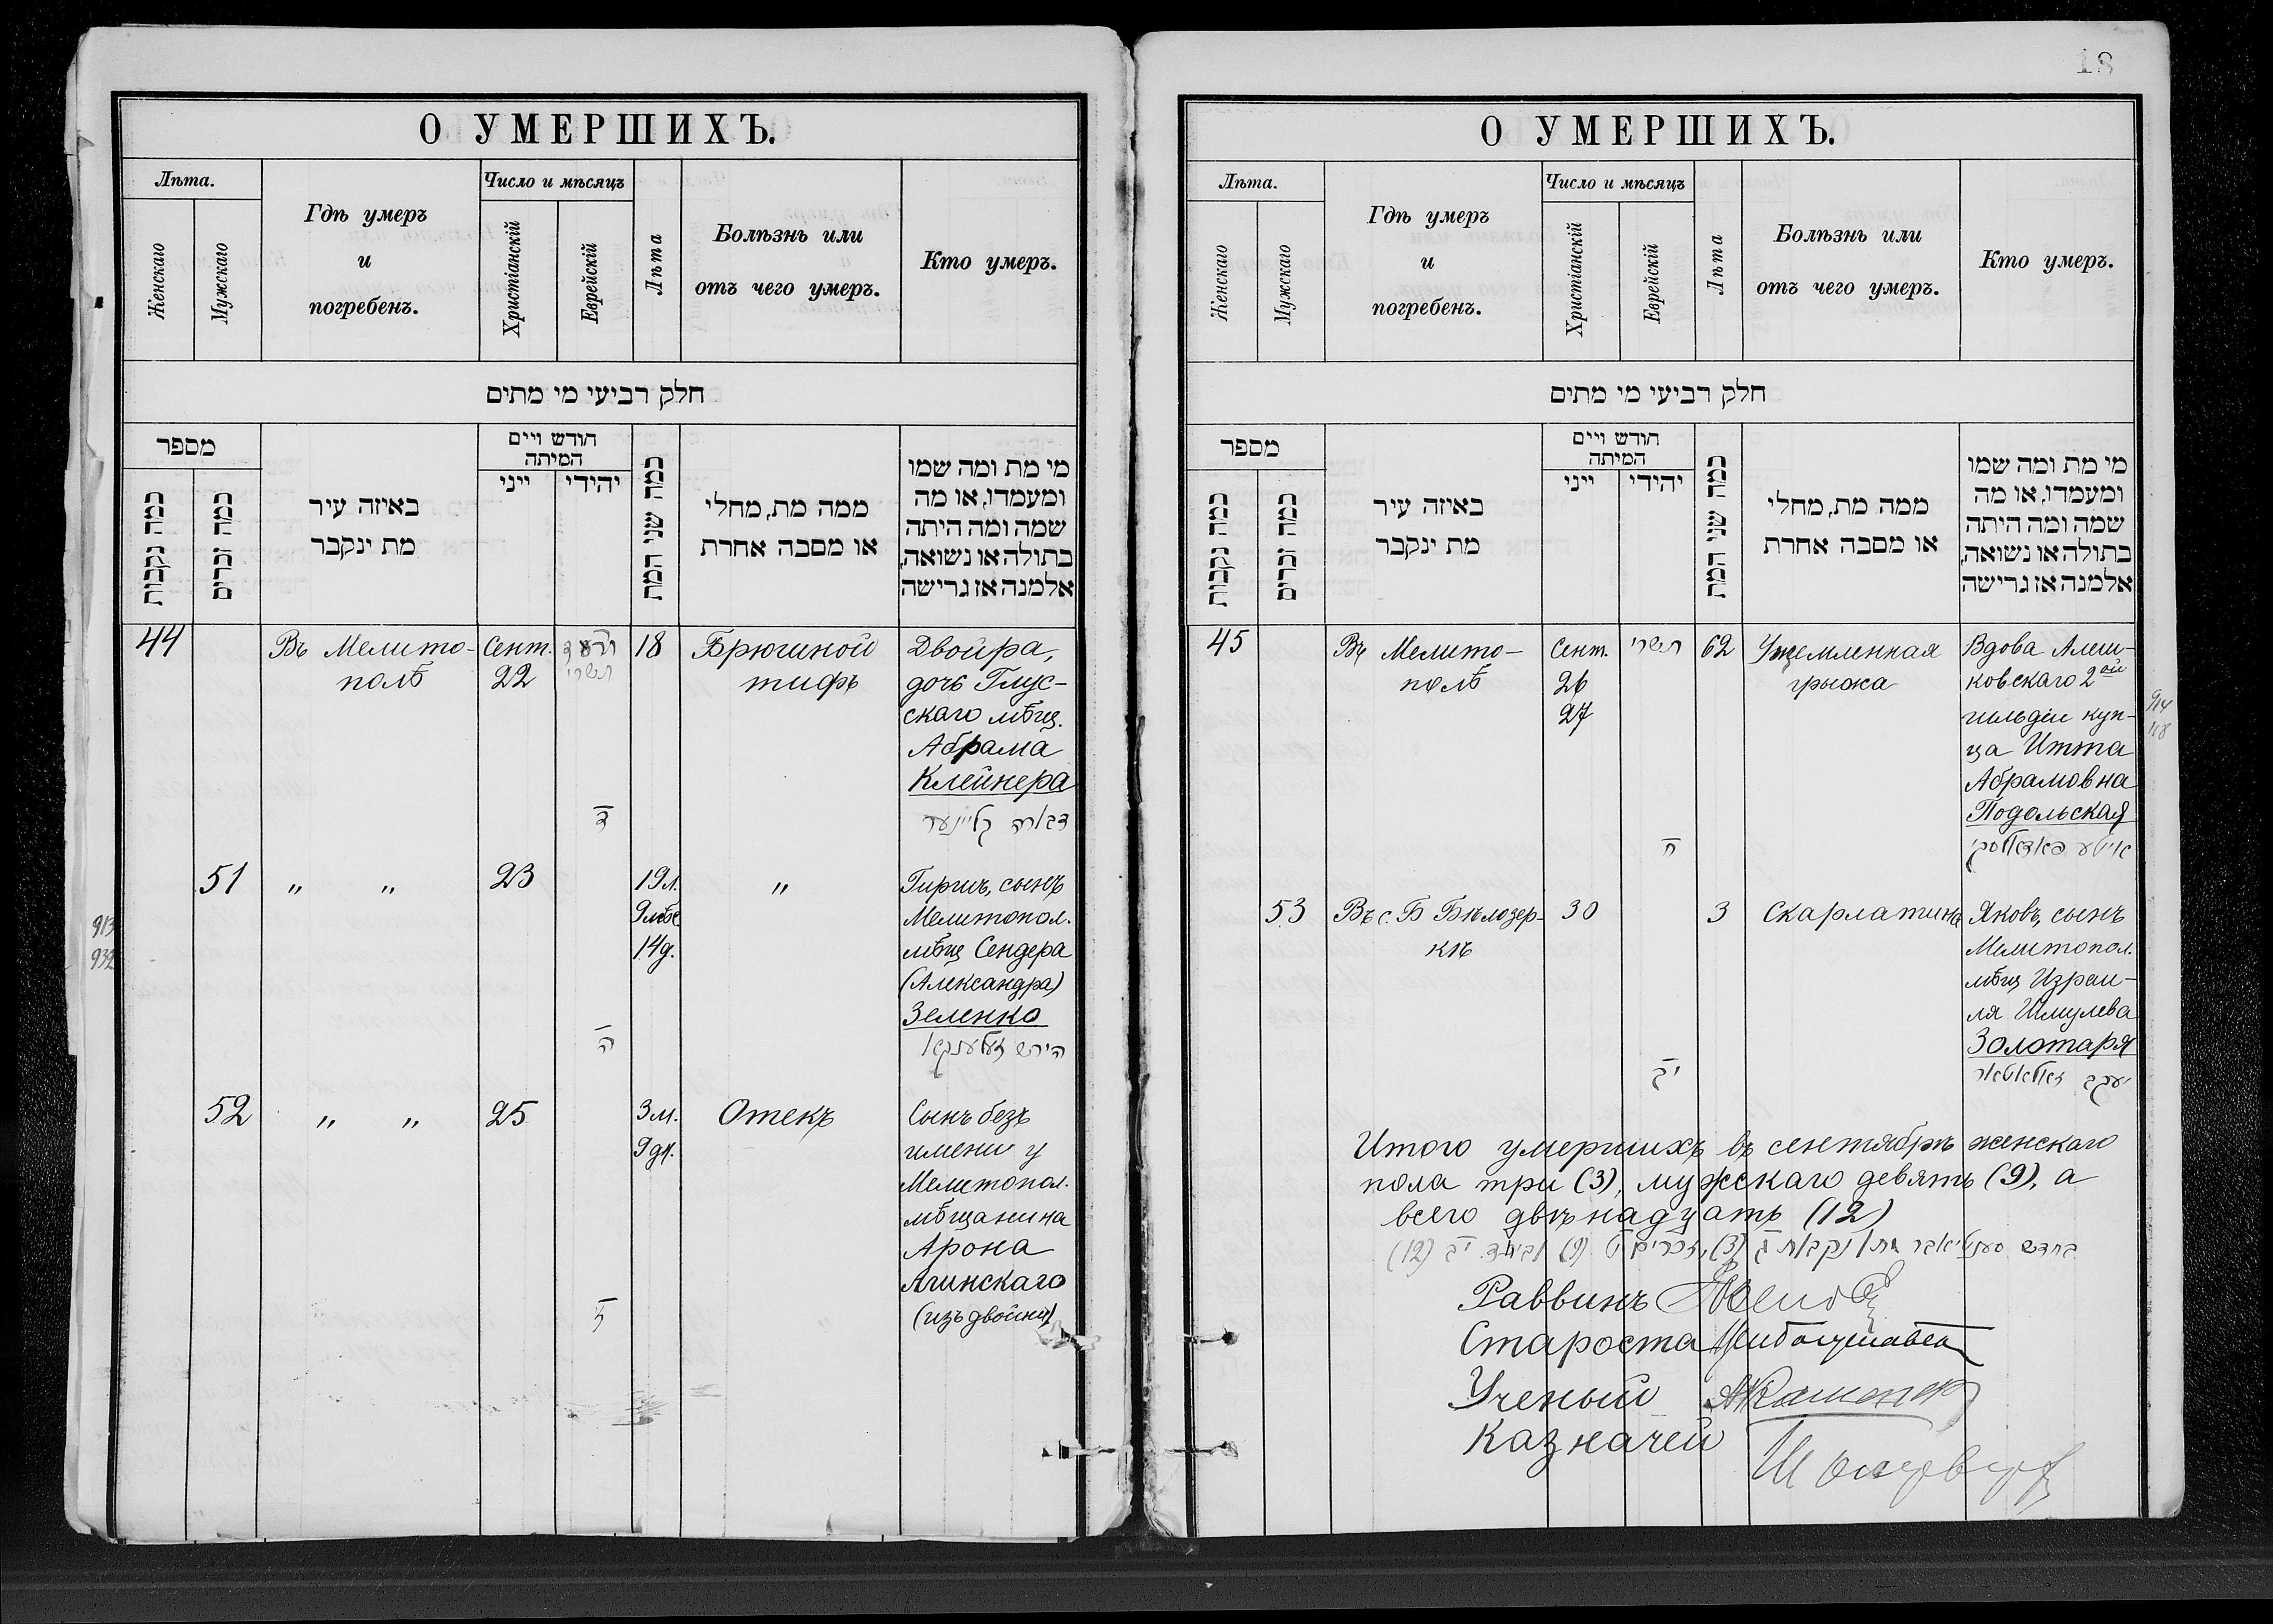 О УМЕРШИХЪ.
Лѣта.
Женскаго
Мужскаго
Гдѣ умеръ
и
погребенъ.
Число и мѣсяцъ
Христіанскій
Еврейскій
Лѣта
Болѣзнь или
отъ чего умеръ.
Кто умеръ.
חלק רביעי מי מתים
מספר
כמה נקבות
כמה זכרים
באיזה עיר
מת ינקבר
חודש ויים
המיתה
ייני
יהידי
כמה שני המת
ממה מת, מחלי
או מסבה אחרת
מי מת ומה שמו
ומעמדו, או מה
שמה ומה היתה
בתולה או נשואה,
אלמנה אז גרישה
44
Въ Мелито-
полѣ
Сент.
22
תשרי
ד
18
Брюшной
тифъ
Двойра,
дочь Глус-
скаго мѣщ.
Абрама
Клейнера
דבורה קליינער
51
" "
23
ה
19 л.
9 мѣс
14 д.
"
Гиршъ, сынъ
Мелитопол.
мѣщ Сендера
(Александра)
Зеленко
הירש זעלענקא
913
932
52
" "
25
3 м.
9 дн.
Отекъ
Сынъ безъ
имени у
Мелитопол.
мѣщанина
Арона
Агинскаго
(изъ двойни)
18
О УМЕРШИХЪ.
Лѣта.
Женскаго
Мужскаго
Гдѣ умеръ
и
погребенъ.
Число и мѣсяцъ
Христіанскій
Еврейскій
Лѣта
Болѣзнь или
отъ чего умеръ.
Кто умеръ.
חלק רביעי מי מתים
מספר
כמה נקבות
כמה זכרים
באיזה עיר
מת ינקבר
חודש ויים
המיתה
ייני
יהידי
כמה שני המת
ממה מת, מחלי
או מסבה אחרת
מי מת ומה שמו
ומעמדו, או מה
שמה ומה היתה
בתולה או נשואה,
אלמנה אז גרישה
45
Въ Мелито-
полѣ
Сент.
26
27
תשרי
ח
62
Ущемленная
грыжа
Вдова Алеш-
ковскаго 2ой
гильдіи куп-
ца Итта
Абрамовна
Подольская
איטע פאדאלסקי
53
Въ с. Б Бѣлозер-
кѣ
30
יב
3
Скарлатина
Яковъ, сынъ
Мелитопол.
мѣщ Израи-
ля Шмулева
Золотаря
יעקב זאלאטאר
Итого умершихъ въ сентябрѣ женскаго
пола три (3), мужскаго девять (9), а
всего двѣнадцать (12)
בחדש סענטיאבר מתו נקבות ג (3), זכרים ט (9) וביחד יב (12)
Раввинъ
Староста
Ученый
Казначей